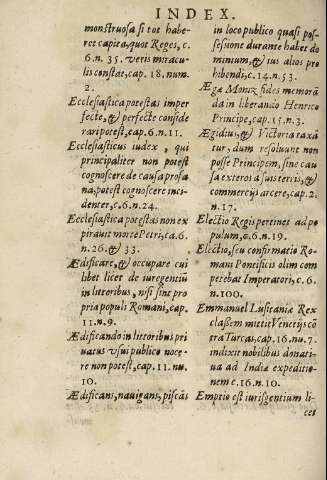 INDEX.
monstruosa si tot habe-
ret capita, quot Reges, c.
6. n. 35. veris miracu-
lis constat, cap. 18. num.
2.
Ecclesiastica potestas imper
fecte, & perfecte conside
rari potest, cap. 6. n. 11.
Ecclesiasticus iudex, qui
principaliter non potest
cognoscere de causa profa-
na, potest cognoscere inci-
denter, c. 6. n. 24.
Ecclesiastica potestas non ex
piravit morte Petri, ca. 6.
n. 26. & 33.
Ædificare, & occupare cui
libet licet de iuregentiũ
in littoribus, nisi sint pro
pria populi Romani, cap.
11. n. 9.
Ædificando in littoribus pri
uatus vsui publico noce-
re non potest, cap. 11. nu.
10.
Ædificans, nauigans, piscãs
in loco publico quasi pos-
sessione durante habet do
minium, & ius alios pro
hibendi, c. 14. n. 53.
Ægæ Moniz fides memorã
da in liberãdo Henrico
Principe, cap. 15. n. 3.
Ægidius, & Victoria taxã
tur, dum resoluunt non
posse Principem, sine cau
sa exteros à suis terris, &
commercijs arcere, cap. 2.
n. 17.
Electio Regis pertinet ad po
pulum, c. 6. n. 19.
Electio, seu confirmatio Ro-
mani Pontificis olim com
petebat Imperatori, c. 6.
n. 100.
Emmanuel Lusitaniæ Rex
classem mittit Venetijs cõ
tra Turcas, cap. 16. nu. 7.
indixit nobilibus donati-
ua ad Indiæ expeditio-
nem c. 16. n. 10.
Emptio est iurisgentium li-
cet